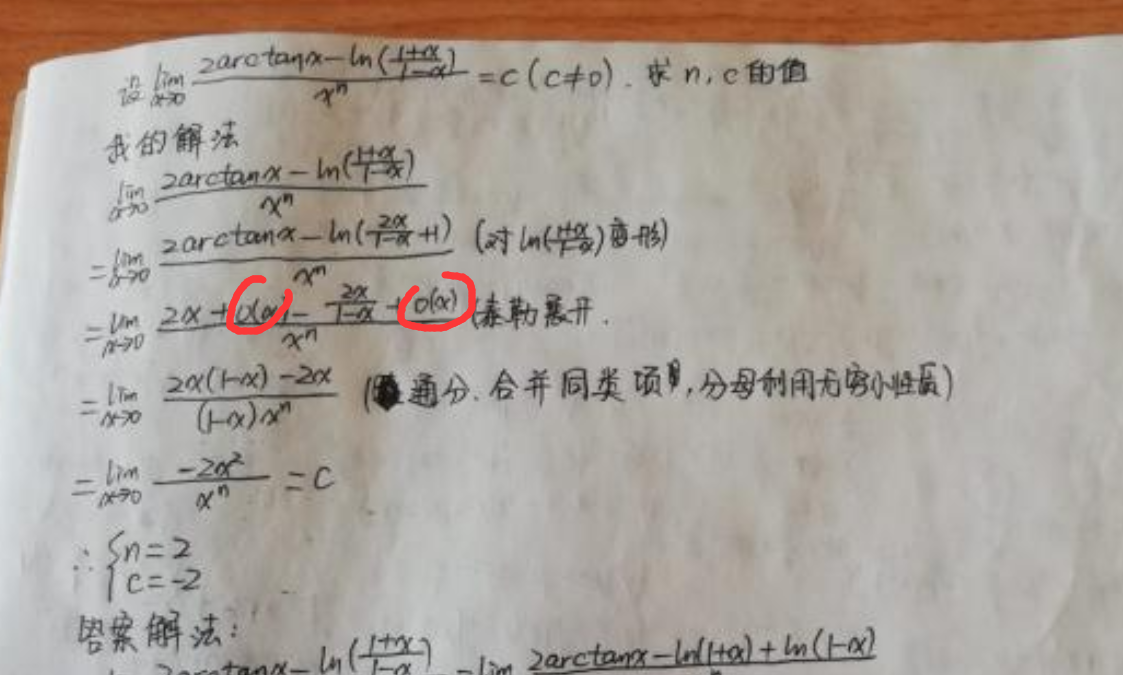 设 lim x→0 (2arctanx-ln(1+x/1-x))/x^n = c (c≠0). 求 n, c 的值
我的解法
lim x→0 (2arctanx-ln(1+x/1-x))/x^n
= lim x→0 (2arctanx-ln(2x/1-x +1))/x^n (对 ln(1+x/1-x) 变形)
= lim x→0 (2x+o(x)-2x/1-x+o(x))/x^n (泰勒展开.
= lim x→0 (2x(1-x)-2x)/(1-x)x^n (通分.合并同类项,分母利用无穷小性质)
= lim x→0 -2x²/x^n = c
∴ { n=2
c=-2
答案解法:
2arctanx-ln(1+x/1-x) = lim 2arctanx-ln(1+x)+ln(1-x)